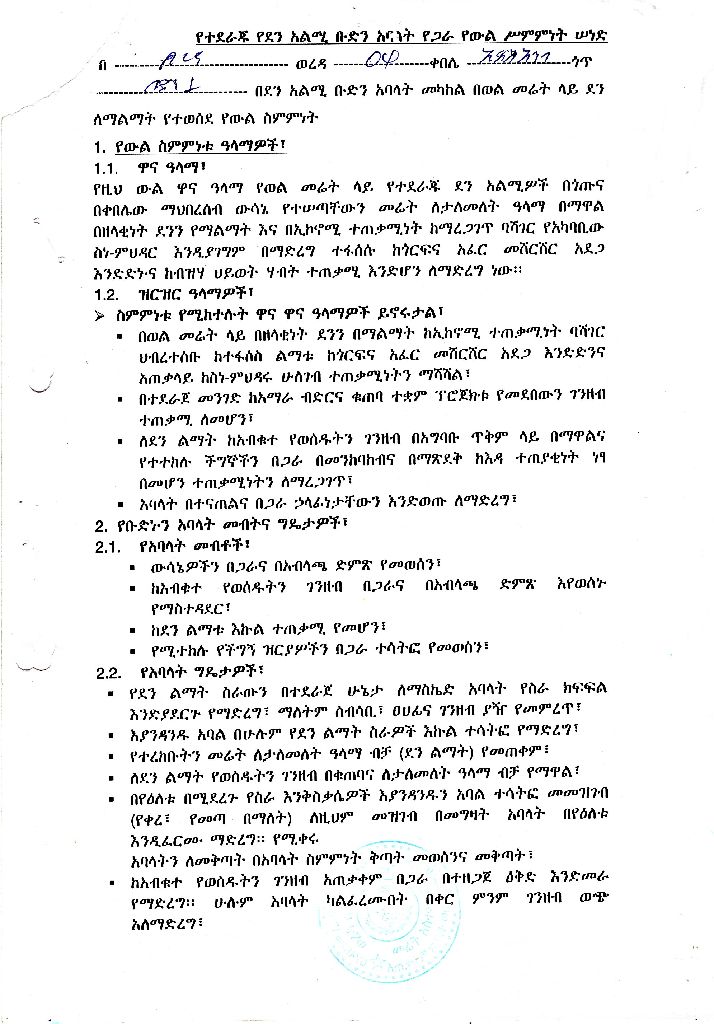 የተደራጁ የደን አልሚ ቡድን አባላት የጋራ የውል ሥምምነት ሠነድ
በ ወረዳ 04 ቀበሌ ጎጥ
በደን አልሚ ቡድን አባላት መካከል በወል መሬት ላይ ደን
ለማልማት የተወሰደ የውል ስምምነት
1. የውል ስምምነቱ ዓላማዎች፣
1.1. ዋና ዓላማ፣
የዚህ ውል ዋና ዓላማ የወል መሬት ላይ የተደራጁ ደን አልሚዎች በጎጡና
በቀበሌው ማህበረሰብ ውሳኔ የተሠጣቸውን መሬት ለታለመለት ዓላማ በማዋል
በዘላቂነት ደንን የማልማት እና በኢኮኖሚ ተጠቃሚነት ከማረጋገጥ ባሻገር የአካባቢው
ስነ-ምህዳር እንዲያገግም በማድረግ ተፋሰሱ ከጎርፍና አፈር መሸርሸር አደጋ
እንድድኑና ከብዝሃ ህይወት ሃብት ተጠቃሚ እንድሆን ለማድረግ ነው።
1.2. ዝርዝር ዓላማዎች፣
➢ ስምምነቱ የሚከተሉት ዋና ዋና ዓላማዎች ይኖሩታል፣
▪ በወል መሬት ላይ በዘላቂነት ደንን በማልማት ከኢኮኖሚ ተጠቃሚነት ባሻገር
ህብረተሰቡ ከተፋሰስ ልማቱ ከጎርፍና አፈር መሸርሸር አደጋ እንድድንና
አጠቃላይ ከስነ-ምህዳሩ ሁለገብ ተጠቃሚነትን ማሻሻል፣
▪ በተደራጀ መንገድ ከአማራ ብድርና ቁጠባ ተቋም ፕሮጀክቱ የመደበውን ገንዘብ
ተጠቃሚ ለመሆን፣
▪ ለደን ልማት ከአብቁተ የወሰዱትን ገንዘብ በአግባቡ ጥቅም ላይ በማዋልና
የተተከሉ ችግኞችን በጋራ በመንከባከብና በማጽደቅ ከእዳ ተጠያቂነት ነፃ
በመሆን ተጠቃሚነትን ለማረጋገጥ፣
▪ አባላት በተናጠልና በጋራ ኃላፊነታቸውን እንድወጡ ለማድረግ፣
2. የቡድኑን አባላት መብትና ግዴታዎች፣
2.1. የአባላት መብቶች፣
▪ ውሳኔዎችን በጋራና በአብላጫ ድምጽ የመወሰን፣
▪ ከአብቁተ የወሰዱትን ገንዘብ በጋራና በአብላጫ ድምጽ እየወሰኑ
የማስተዳደር፣
▪ ከደን ልማቱ እኩል ተጠቃሚ የመሆን፣
▪ የሚተከሉ የችግኝ ዝርያዎችን በጋራ ተሳትፎ የመወሰን፣
2.2. የአባላት ግዴታዎች፣
▪ የደን ልማት ስራውን በተደራጀ ሁኔታ ለማስኬድ አባላት የስራ ክፍፍል
እንድያደርጉ የማድረግ፣ ማለትም ሰብሳቢ፣ ፀሀፊና ገንዘብ ያዥ የመምረጥ፣
▪ እያንዳንዱ አባል በሁሉም የደን ልማት ስራዎች እኩል ተሳትፎ የማድረግ፣
▪ የተረከቡትን መሬት ለታለመለት ዓላማ ብቻ (ደን ልማት) የመጠቀም፣
▪ ለደን ልማት የወሰዱትን ገንዘብ በቁጠባና ለታለመለት ዓላማ ብቻ የማዋል፣
▪ በየዕለቱ በሚደረጉ የስራ እንቅስቃሴዎች እያንዳንዱን አባል ተሳትፎ መመዝገብ
(የቀረ፣ የመጣ በማለት) ለዚህም መዝገብ በመግዛት አባላት በየዕለቱ
እንዲፈርሙ ማድረግ። የሚቀሩ
አባላትን ለመቅጣት በአባላት ስምምነት ቅጣት መወሰንና መቅጣት፣
▪ ከአብቁተ የወሰዱትን ገንዘብ አጠቃቀም በጋራ በተዘጋጀ ዕቅድ እንድመራ
የማድረግ። ሁሉም አባላት ካልፈረሙበት በቀር ምንም ገንዘብ ወጭ
አለማድረግ፣